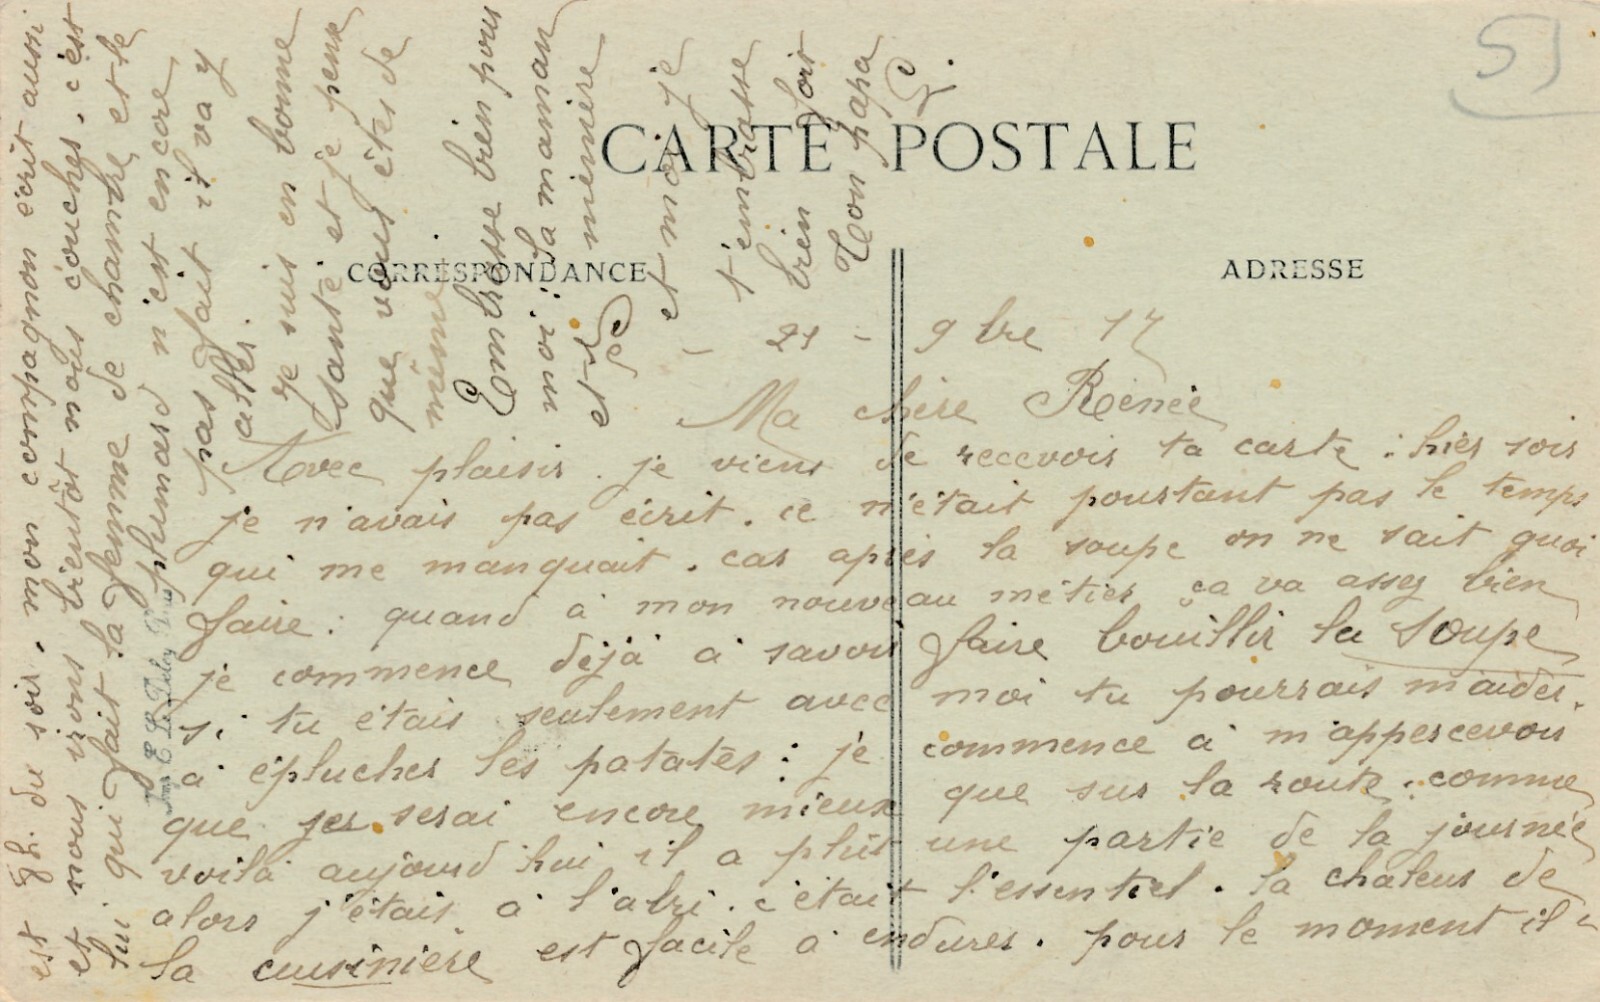 51
CARTE POSTALE
CORRESPONDANCE
ADRESSE
- 21 - 9bre 17
Ma chère Renée
Avec plaisir. je viens de recevoir ta carte : hier soir
je n'avais pas écrit. ce n'était pourtant pas le temps
qui me manquait. car après la soupe on ne sait quoi
faire : quand à mon nouveau métier ça va assez bien
je commence déjà à savoir faire bouillir la soupe
si tu étais seulement avec moi tu pourrais m'aider.
à éplucher les patates : je commence à m'appercevoir
que je serai encore mieux que sur la route. comme
voilà aujourd'hui il a plût une partie de la journée
alors j'étais à l'abri. c'était l'essentiel. la chaleur de
la cuisinière est facile à endurer. pour le moment il
est 8h. du soir. mon compagnon écrit aussi
et nous irons bientôt nous coucher. c'est
lui qui fait la femme de chambre et le
plumard n'est encore
pas fait il va y
aller.
je suis en bonne
santé et je pense
que vous êtes de
même
Embrasse bien pour
moi ta maman
et mémère
et moi je
t'embrasse
bien fort
Ton papa
Imp. E. Le Deley Paris